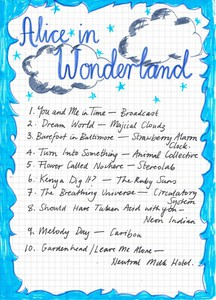 Alice in
Wonderland
1. You and Me in Time — Broadcast
2. Dream World — Majical Cloudz
3. Barefoot in Baltimore — Strawberry Alarm
Clock.
4. Turn Into Something — Animal Collective
5. Flower Called Nowhere — Stereolab
6. Kenya Dig It? — The Ruby Suns
7. The Breathing Universe — Circulatory
System
8. Should Have Taken Acid with you —
Neon Indian
9. Melody Day — Caribou
10. Gardenhead / Leave Me Alone —
Neutral Milk Hotel.